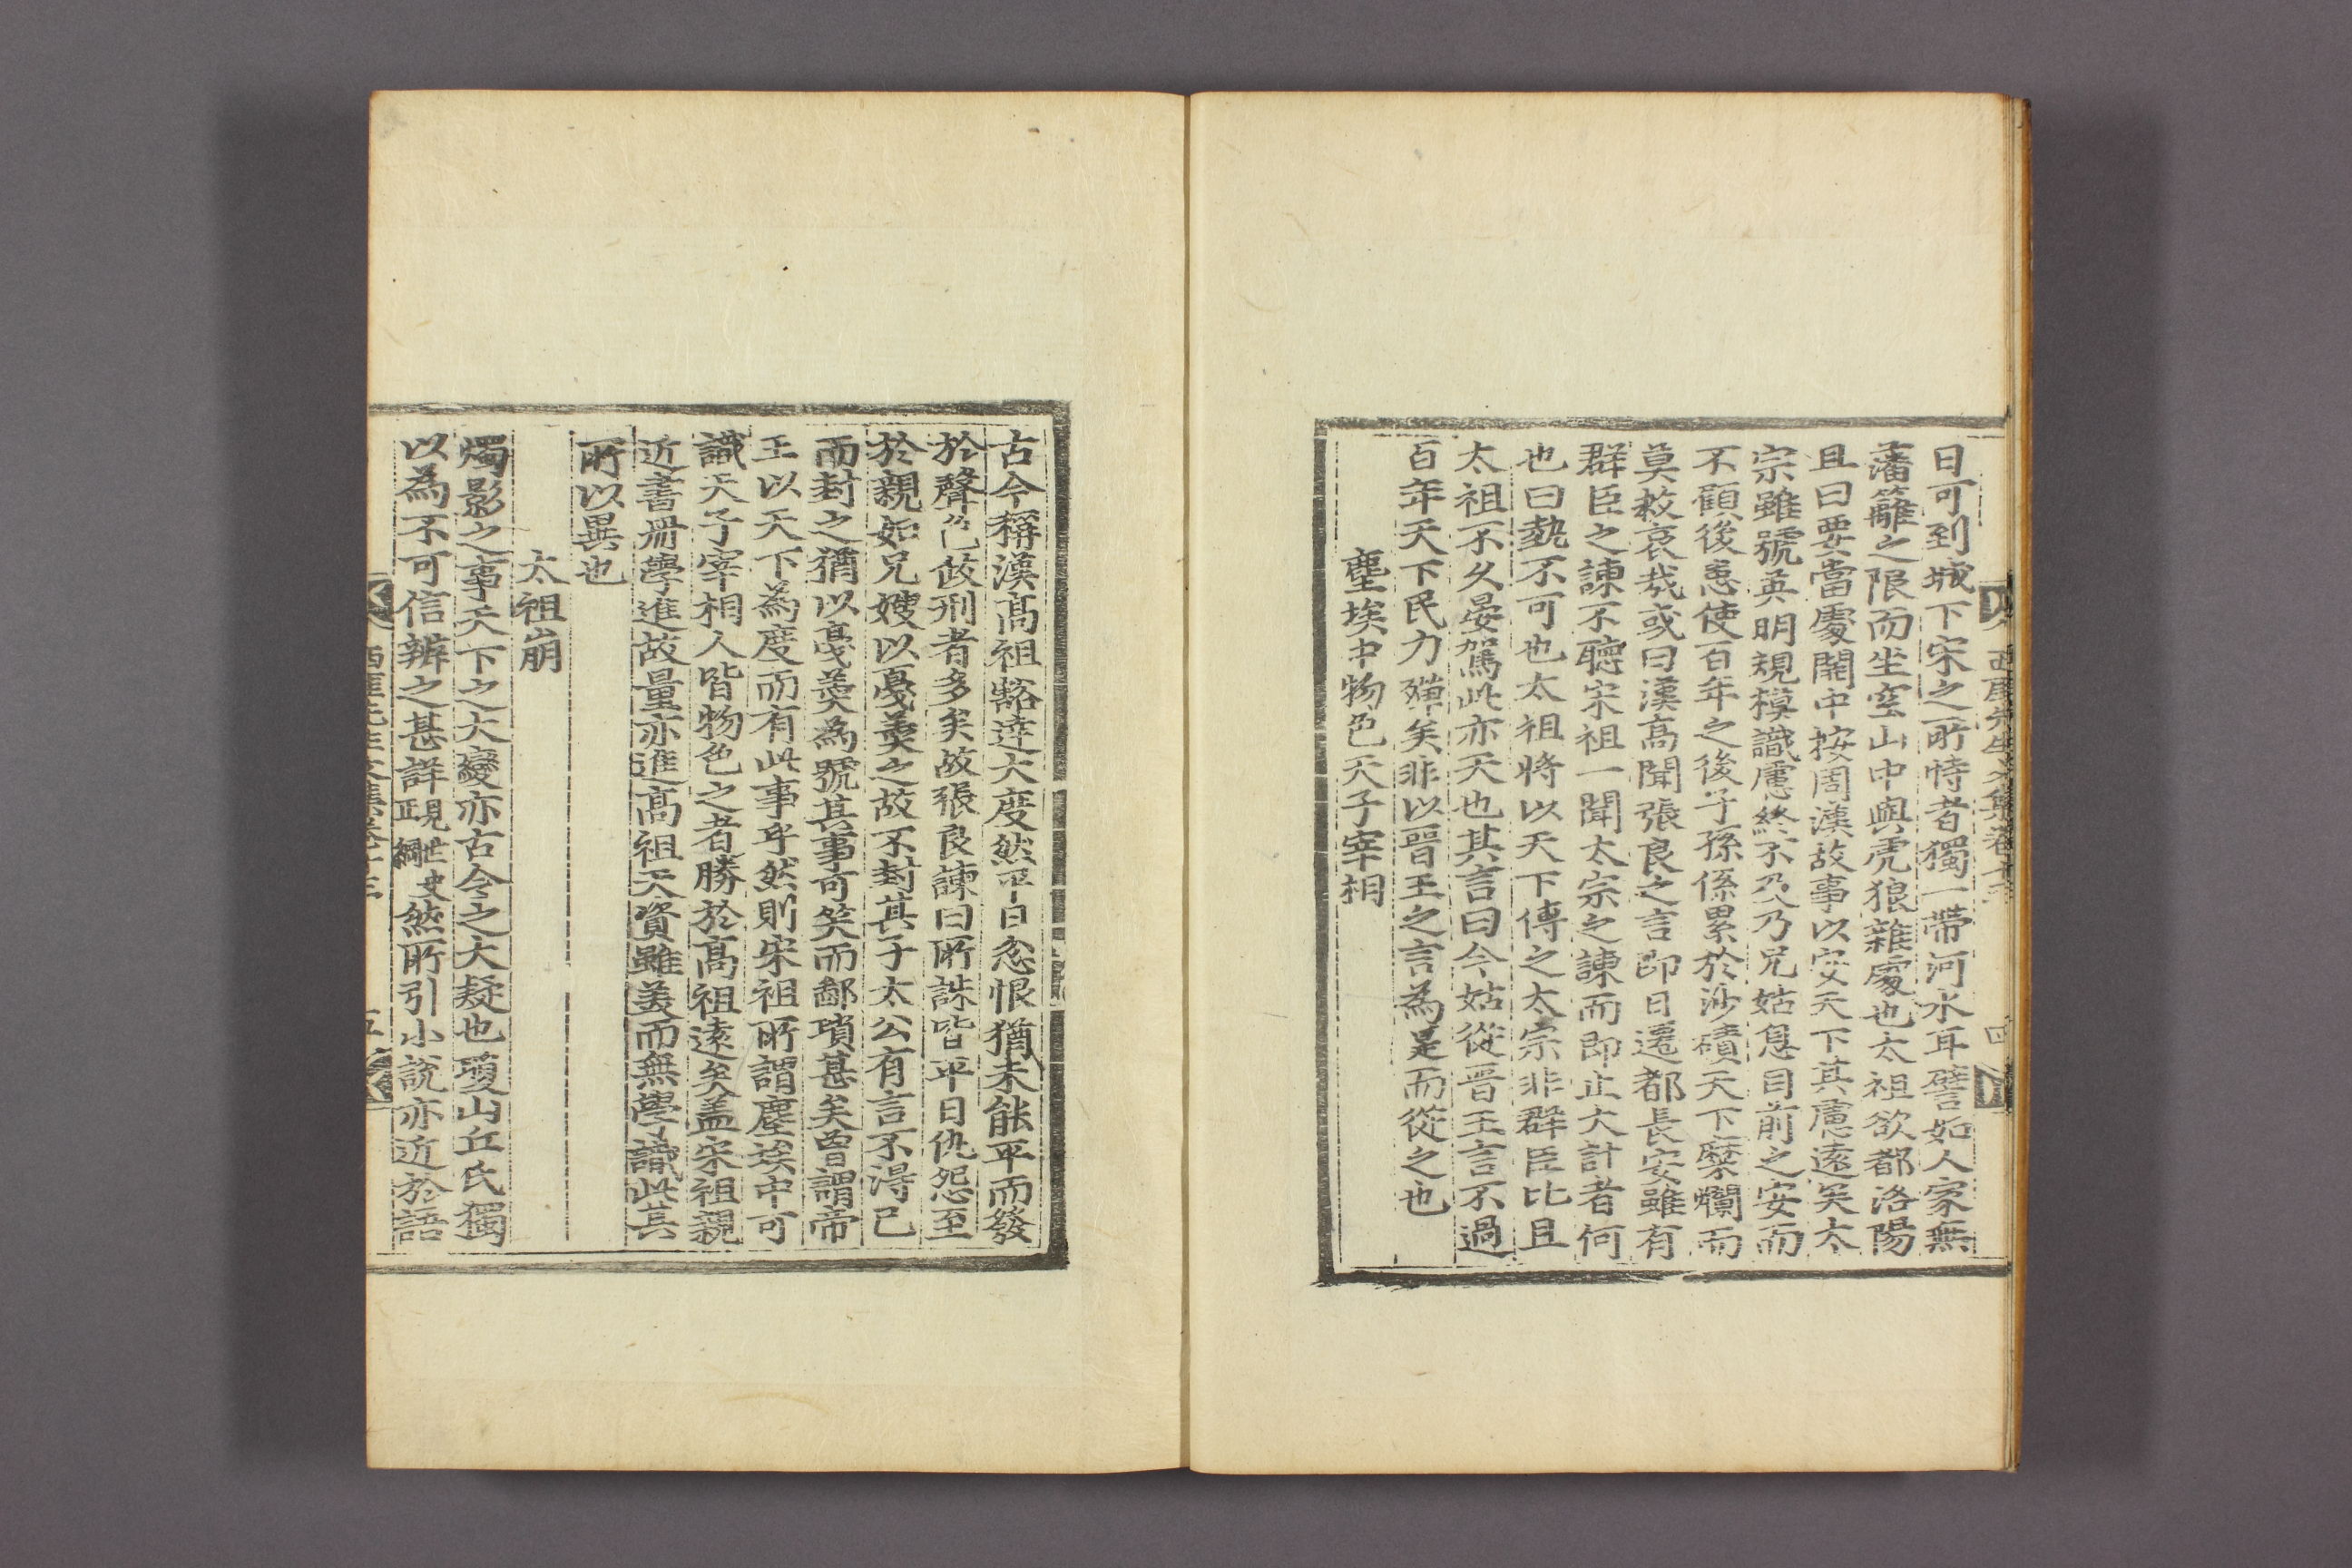 日可到城下宋之所恃者獨一帶河水耳譬如人家無
藩籬之限而坐空山中與虎狼雜處也太祖欲都洛陽
且曰要當處關中按周漢故事以安天下其慮遠矣太
宗雖號英明規模識慮終不及乃兄姑息目前之安而
不顧後患使百年之後子孫係累於沙磧天下糜爛而
莫救哀哉或曰漢高聞張良之言卽日遷都長安雖有
群臣之諫不聽宋祖一聞太宗之諫而卽止大計者何
也曰勢不可也太祖將以天下傳之太宗非群臣比且
太祖不久晏駕此亦天也其言曰今姑從晉王言不過
百年天下民力殫矣非以晉王之言為是而從之也
塵埃中物色天子宰相
西厓先生文集卷十三
四
古今稱漢高祖豁達大度然平日忿恨猶未能平而發
於聲色故刑者多矣故張良諫曰所誅皆平日仇怨至
於親如兄嫂以戞羹之故不封其子太公有言不得已
而封之猶以戞羹為號其事可笑而鄙瑣甚矣曾謂帝
王以天下為度而有此事乎然則宋祖所謂塵埃中可
識天子宰相人皆物色之者勝於高祖遠矣盖宋祖親
近書册學進故量亦進高祖天資雖美而無學識此其
所以異也
太祖崩
燭影之事天下之大變亦古今之大疑也瓊山丘氏獨
以為不可信辨之甚詳見世史正綱然所引小說亦近於語
西厓先生文集卷十三
五